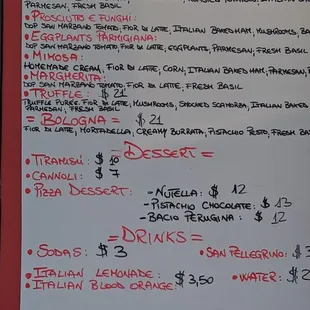 PARMESAN, FRESH BASIL
• PROSCIUTTO E FUNGHI:
DOP SAN MARZANO TOMATO, FIOR DI LATTE, ITALIAN BAKED HAM, MUSHROOMS, BA
• EGGPLANTS PARMIGIANA:
DOP SAN MARZANO TOMATO, FIOR DI LATTE, EGGPLANTS, PARMESAN, FRESH BASIL
• MIMOSA:
HOMEMADE CREAM, FIOR DI LATTE, CORN, ITALIAN BAKED HAM, PARMESAN,
• MARGHERITA:
DOP SAN MARZANO TOMATO, FIOR DI LATTE, FRESH BASIL
• TRUFFLE: $ 21
TRUFFLE PUREE, FIOR DI LATTE, MUSHROOMS, SMOKED SCAMORZA, ITALIAN BAKED
PARMESAN, FRESH BASIL
= BOLOGNA = $ 21
FIOR DI LATTE, MORTADELLA, CREAMY BURRATA, PISTACHIO PESTO, FRESH BAS
= DESSERT =
• TIRAMISÙ: $ 10
• CANNOLI: $ 7
• PIZZA DESSERT: - NUTELLA: $ 12
- PISTACHIO CHOCOLATE: $ 13
- BACIO PERUGINA: $ 12
= DRINKS =
• SODAS: $ 3 • SAN PELLEGRINO: $ 3
• ITALIAN LEMONADE: $ 3,50 • WATER: $ 2
• ITALIAN BLOOD ORANGE: